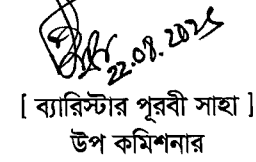 22.08.2025
[ ব্যারিস্টার পূরবী সাহা ]
উপ কমিশনার